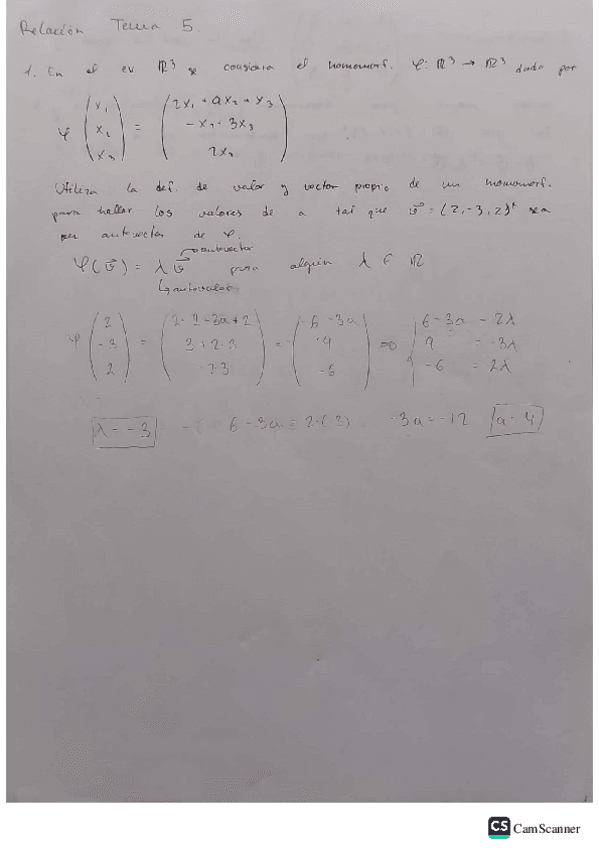 Relación Tema 5.
1. En el ev ℝ³ se considera el homomorf. φ: ℝ³ → ℝ³ dado por
φ (x₁ x₂ x₃) = (2x₁ + ax₂ + x₃
-x₁ + 3x₃
2x₂)
Utiliza la def. de valor y vector propio de un homomorf.
para hallar los valores de a tal que v⃗ = (2, -3, 2)ᵗ sea
un autovector de φ.
autovector
φ(v⃗) = λ v⃗ para algún λ ∈ ℝ
autovalor
φ (2 -3 2) = (2·2 - 3a + 2
2·3) = (6 - 3a
-6) ⇒ { 6 - 3a = 2λ
= -3λ
-6 = 2λ
λ = -3 6 - 3a = 2·(-3) -3a = -12 a = 4
CS CamScanner